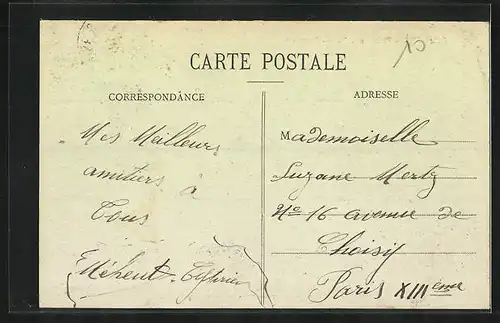 CARTE POSTALE
CORRESPONDANCE
ADRESSE
Mes Meilleurs
amitiers à
Tous
Méheut
Mademoiselle
Suzane Mertz
No 16 avenue de
Choisy
Paris XIIIème